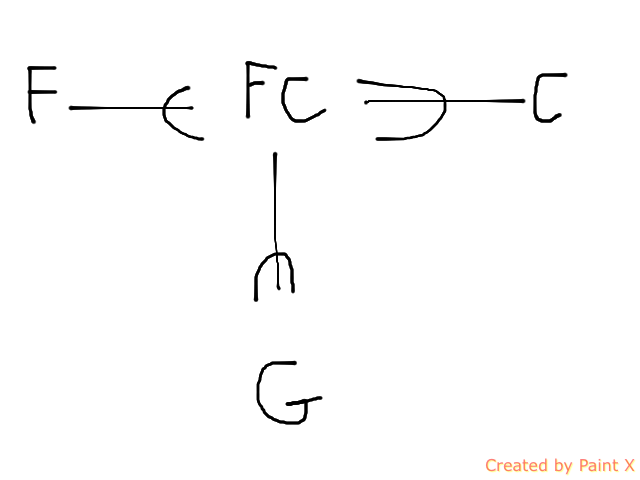 F FC C
G
Created by Paint X